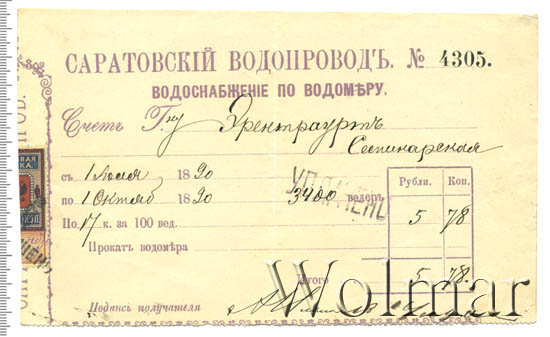 САРАТОВСКІЙ ВОДОПРОВОДЪ. № 4305.
ВОДОСНАБЖЕНІЕ ПО ВОДОМѢРУ.
Счетъ Гну
съ 1 Іюля 1890
по 1 Октяб 1890 3400 ведеръ
УПЛАЧЕНО
По 17 к. за 100 вед.
Прокатъ водомѣра
Рубли. Коп.
5 78
Итого 5 78.
Подпись получателя
Wolmar